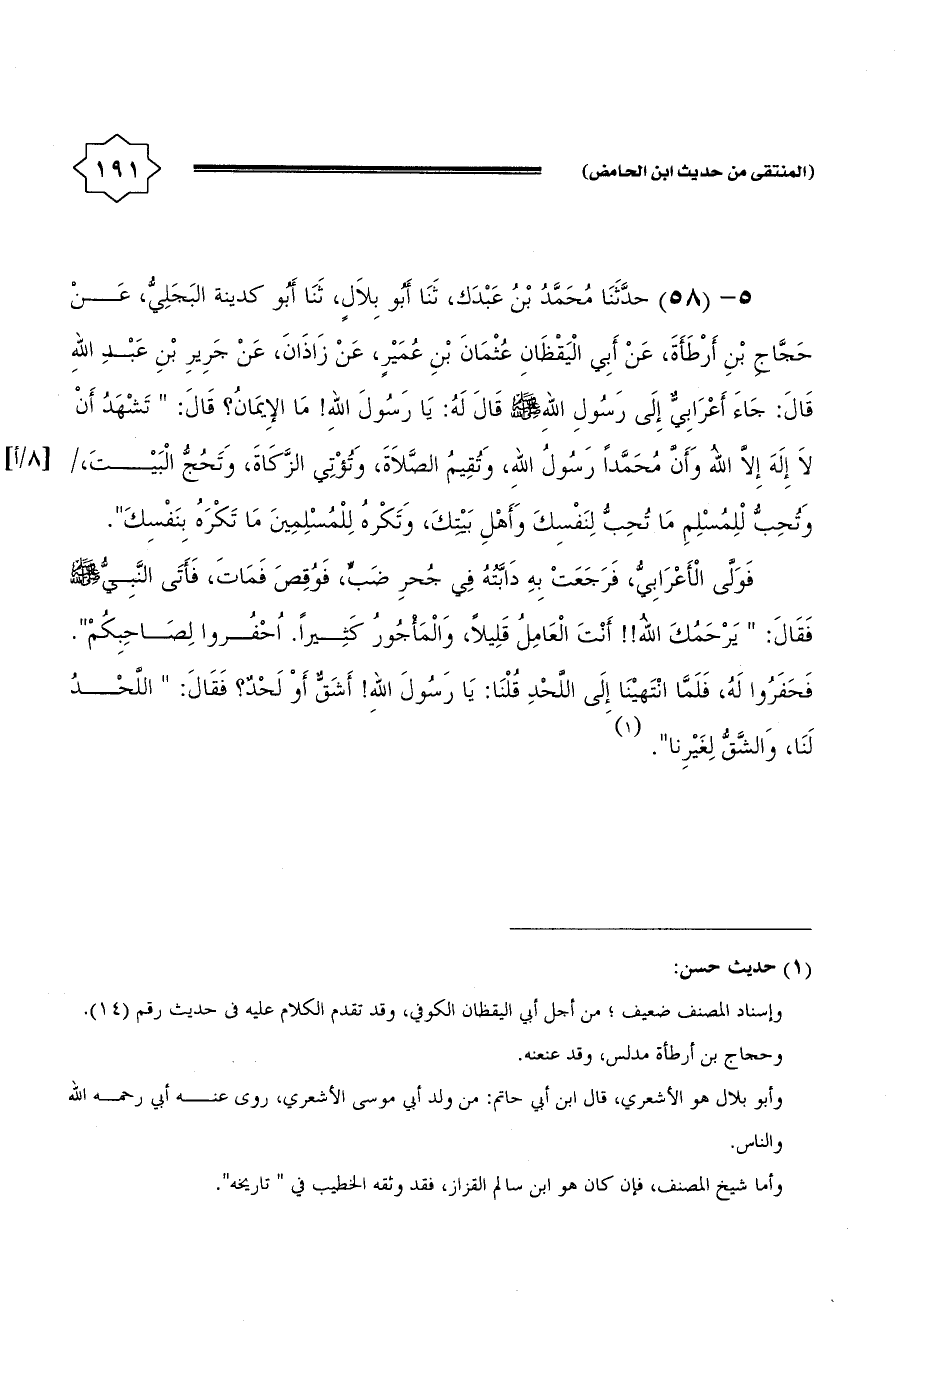 (المنتقى من حديث ابن الحامض) ١٩١
٥- (٥٨) حدَّثَنَا مُحَمَّدُ بْنُ عَبْدَك، ثَنَا أَبُو بِلاَلٍ، ثَنَا أَبُو كدينة البَجَلِيُّ، عَـــنْ
حَجَّاجِ بْنِ أَرْطَأَةَ، عَنْ أَبِي الْيَقْظَانِ عُثْمَانَ بْنِ عُمَيْرٍ، عَنْ زَاذَانَ، عَنْ جَرِيرِ بْنِ عَبْـدِ اللهِ
قَالَ: جَاءَ أَعْرَابِيٌّ إِلَى رَسُولِ اللهِ ﷺ قَالَ لَهُ: يَا رَسُولَ اللهِ! مَا الإِيمَانُ؟ قَالَ: " تَشْهَدُ أَنْ
لاَ إِلَهَ إِلاَّ اللهُ وَأَنَّ مُحَمَّداً رَسُولُ اللهِ، وَتُقِيمُ الصَّلاَةَ، وَتُؤْتِي الزَّكَاةَ، وَتَحُجُّ الْبَيْـــتَ،/ [٨/أ]
وَتُحِبُّ لِلْمُسْلِمِ مَا تُحِبُّ لِنَفْسِكَ وَأَهْلِ بَيْتِكَ، وَتَكْرَهُ لِلْمُسْلِمِينَ مَا تَكْرَهُ بِنَفْسِكَ".
فَوَلَّى الْأَعْرَابِيُّ، فَرَجَعَتْ بِهِ دَابَّتُهُ فِي جُحرِ ضَبٍّ، فَوُقِصَ فَمَاتَ، فَأَتَى النَّبِيُّ ﷺ
فَقَالَ: " يَرْحَمُكَ اللهُ!! أَنْتَ الْعَامِلُ قَلِيلاً، وَالْمَأْجُورُ كَثِـيراً. اُحْفُـروا لِصَـاحِبِكُمْ".
فَحَفَرُوا لَهُ، فَلَمَّا انْتَهَيْنَا إِلَى اللَّحْدِ قُلْنَا: يَا رَسُولَ اللهِ! أَشَقٌّ أَوْ لَحْدٌ؟ فَقَالَ: " اللَّحْـــدُ
لَنَا، وَالشَّقُّ لِغَيْرِنا". (١)
(١) حديث حسن:
وإسناد المصنف ضعيف ؛ من أجل أبي اليقظان الكوفي، وقد تقدم الكلام عليه فى حديث رقم (١٤).
وحجاج بن أرطأة مدلس، وقد عنعنه.
وأبو بلال هو الأشعري، قال ابن أبي حاتم: من ولد أبي موسى الأشعري، روى عنـــه أبي رحمـه الله
والناس.
وأما شيخ المصنف، فإن كان هو ابن سالم القزاز، فقد وثقه الخطيب في " تاريخه".